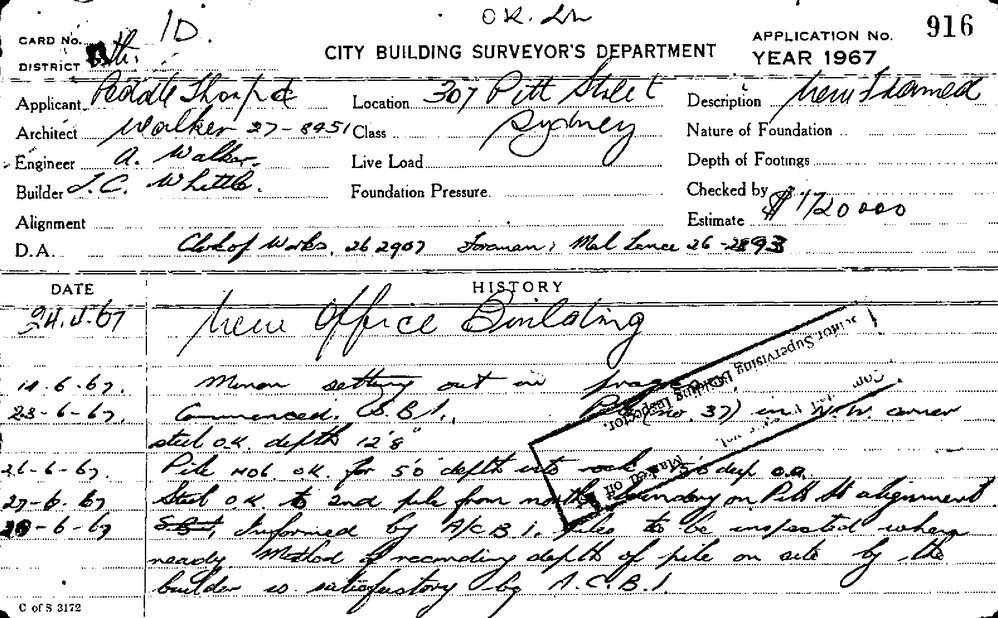 O.K.
CARD No. 1D.
DISTRICT
CITY BUILDING SURVEYOR'S DEPARTMENT
APPLICATION No. 916
YEAR 1967
Applicant Peddle Thorp &
Architect Walker 27-8951
Engineer A. Walker.
Builder J.C. Whittle.
Alignment
D.A. Clerk of Works. 26 2907 Foreman: Mal Lance 26-2893
Location 307 Pitt Street
Class Sydney
Live Load
Foundation Pressure.
Description New Framed
Nature of Foundation
Depth of Footings
Checked by
Estimate $1720000
DATE HISTORY
24.4.67 New Office Building
14.6.67. Minor setting out in
23-6-67. Commenced. S.B.I. (no. 37) in N.W. corner
steel O.K. depth 12'8"
26-6-67. Pile no 6 O.K. for 5'0" depth into rock deep o.a.
27-6.67 Steel O.K. to 2nd pile from north boundary on Pitt St alignment
28-6-67 Informed by A/C.B.I. piles to be inspected when
ready. Method of recording depth of pile on site by the
builder is satisfactory by A.C.B.I
Supervising
Building Inspector.
Marked off
C of S 3172